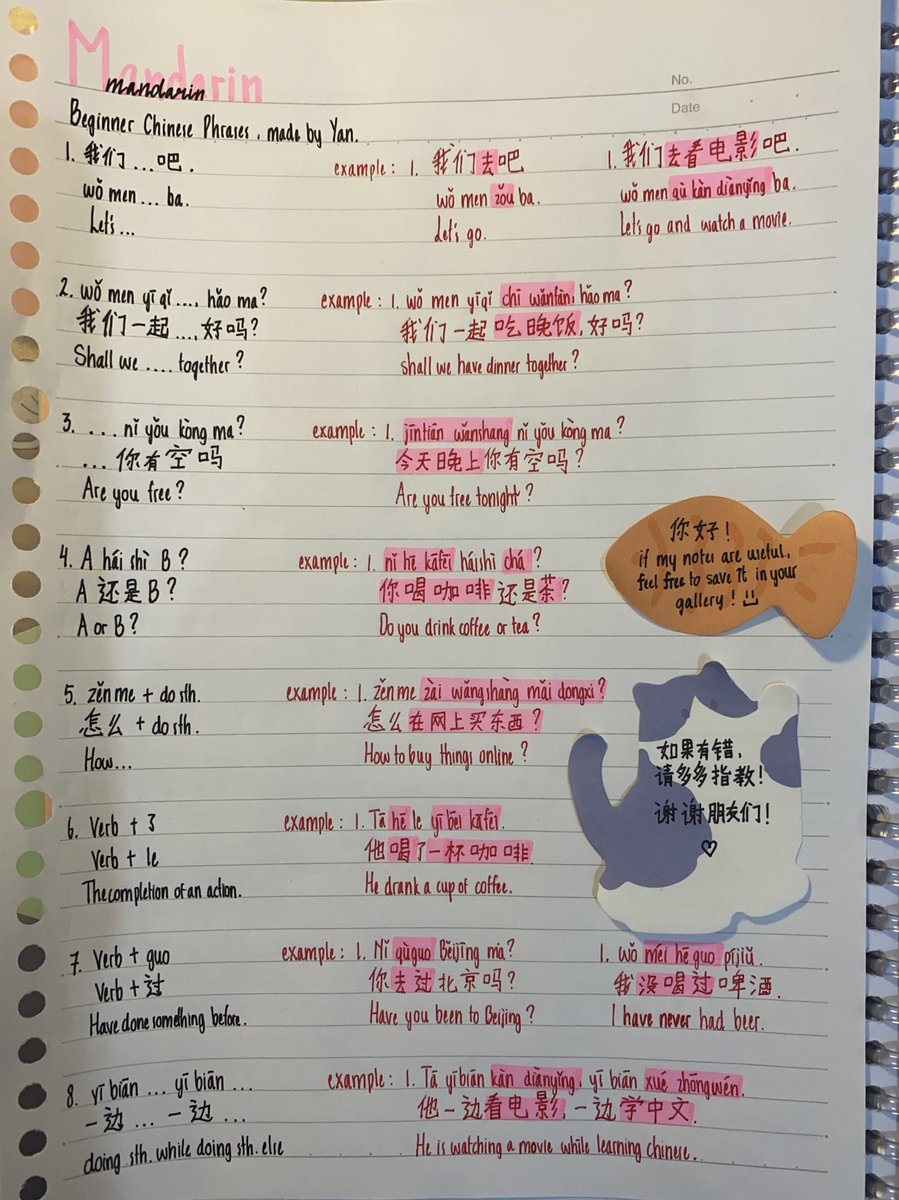 Mandarin
mandarin
No.
Date
Beginner Chinese Phrases, made by Yan.
1. 我们 ... 吧.
wǒ men ... ba.
Let's ...
example : 1. 我们去吧
wǒ men zǒu ba.
Let's go.
1. 我们去看电影吧.
wǒ men qù kàn diànyǐng ba.
Let's go and watch a movie.
2. wǒ men yīqǐ ...., hǎo ma?
我们一起 ...., 好吗?
Shall we .... together?
example : 1. wǒ men yīqǐ chī wǎnfàn, hǎo ma?
我们一起 吃晚饭, 好吗?
shall we have dinner together?
3. ... nǐ yǒu kòng ma?
... 你有空吗
Are you free?
example : 1. jīntiān wǎnshang nǐ yǒu kòng ma?
今天晚上你有空吗?
Are you free tonight?
4. A hái shì B?
A 还是 B?
A or B?
example : 1. nǐ hē kāfēi háishì chá?
你喝咖啡还是茶?
Do you drink coffee or tea?
你好!
if my notes are useful,
feel free to save it in your
gallery!
5. zěn me + do sth.
怎么 + do sth.
How...
example : 1. zěn me zài wǎngshàng mǎi dongxi?
怎么在网上买东西?
How to buy things online?
如果有错,
请多多指教!
谢谢朋友们!
6. Verb + 3
Verb + le
The completion of an action.
example : 1. Tā hē le yī bēi kāfēi.
他喝了一杯咖啡.
He drank a cup of coffee.
7. Verb + guo
Verb + 过
Have done something before.
example : 1. Nǐ qùguo Běijīng ma?
你去过北京吗?
Have you been to Beijing?
1. wǒ méi hē guo píjiǔ.
我没喝过啤酒.
I have never had beer.
8. yī biān ... yī biān ...
一边 ... 一边 ...
doing sth. while doing sth. else
example : 1. Tā yī biān kàn diànyǐng, yī biān xué zhōngwén.
他一边看电影, 一边学中文.
He is watching a movie while learning chinese.